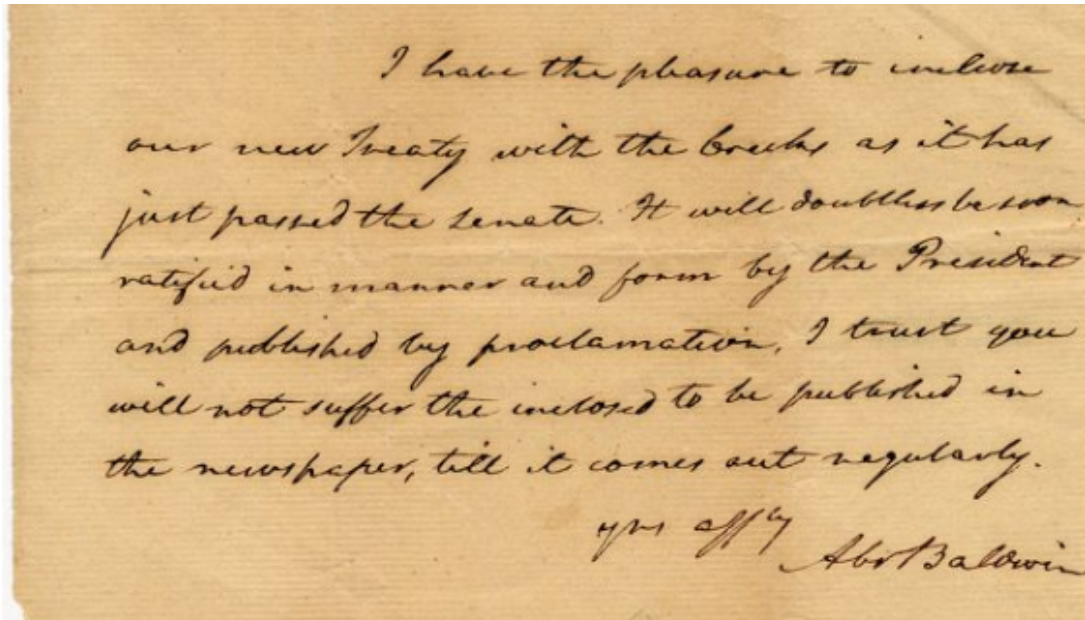 I have the pleasure to inclose
our new Treaty with the Creeks as it has
just passed the Senate. It will doubtless be soon
ratified in manner and form by the President
and published by proclamation, I trust you
will not suffer the inclosed to be published in
the newspaper, till it comes out regularly.
yrs affly
Abr Baldwin